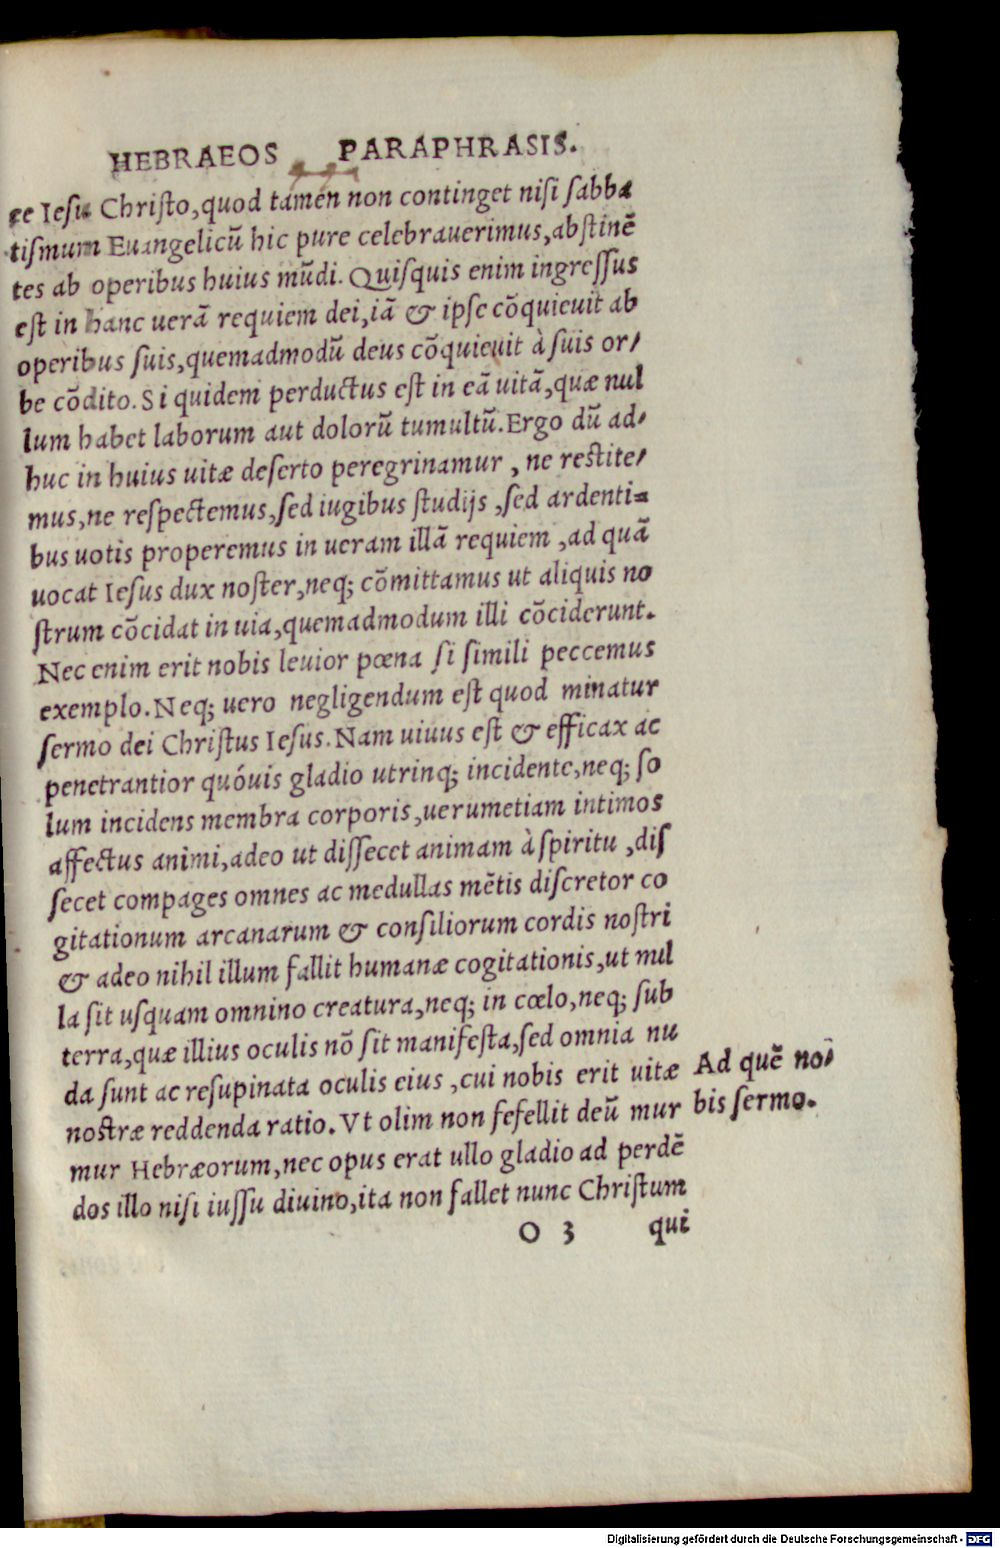 HEBRAEOS PARAPHRASIS.
ce Iesu Christo, quod tamen non continget nisi sabba
tismum Euangelicũ hic pure celebrauerimus, abstinẽ
tes ab operibus huius mũdi. Quisquis enim ingressus
est in hanc uerã requiem dei, iã & ipse cõquieuit ab
operibus suis, quemadmodũ deus cõquieuit à suis or/
be cõdito. Si quidem perductus est in eã uitã, quæ nul
lum habet laborum aut dolorũ tumultũ. Ergo dũ ad/
huc in huius uitæ deserto peregrinamur, ne restite/
mus, ne respectemus, sed iugibus studijs, sed ardenti=
bus uotis properemus in ueram illã requiem, ad quã
uocat Iesus dux noster, neq; cõmittamus ut aliquis no
strum cõcidat in uia, quemadmodum illi cõciderunt.
Nec enim erit nobis leuior pœna si simili peccemus
exemplo. Neq; uero negligendum est quod minatur
sermo dei Christus Iesus. Nam uiuus est & efficax ac
penetrantior quóuis gladio utrinq; incidente, neq; so
lum incidens membra corporis, uerumetiam intimos
affectus animi, adeo ut dissecet animam à spiritu, dis
secet compages omnes ac medullas mẽtis discretor co
gitationum arcanarum & consiliorum cordis nostri
& adeo nihil illum fallit humanæ cogitationis, ut nul
la sit usquam omnino creatura, neq; in cœlo, neq; sub
terra, quæ illius oculis nõ sit manifesta, sed omnia nu
da sunt ac resupinata oculis eius, cui nobis erit uitæ
nostræ reddenda ratio. Vt olim non fefellit deũ mur
mur Hebræorum, nec opus erat ullo gladio ad perdẽ
dos illo nisi iussu diuino, ita non fallet nunc Christum
O 3 qui
Ad quẽ no/
bis sermo.
Digitalisierung gefördert durch die Deutsche Forschungsgemeinschaft - DFG